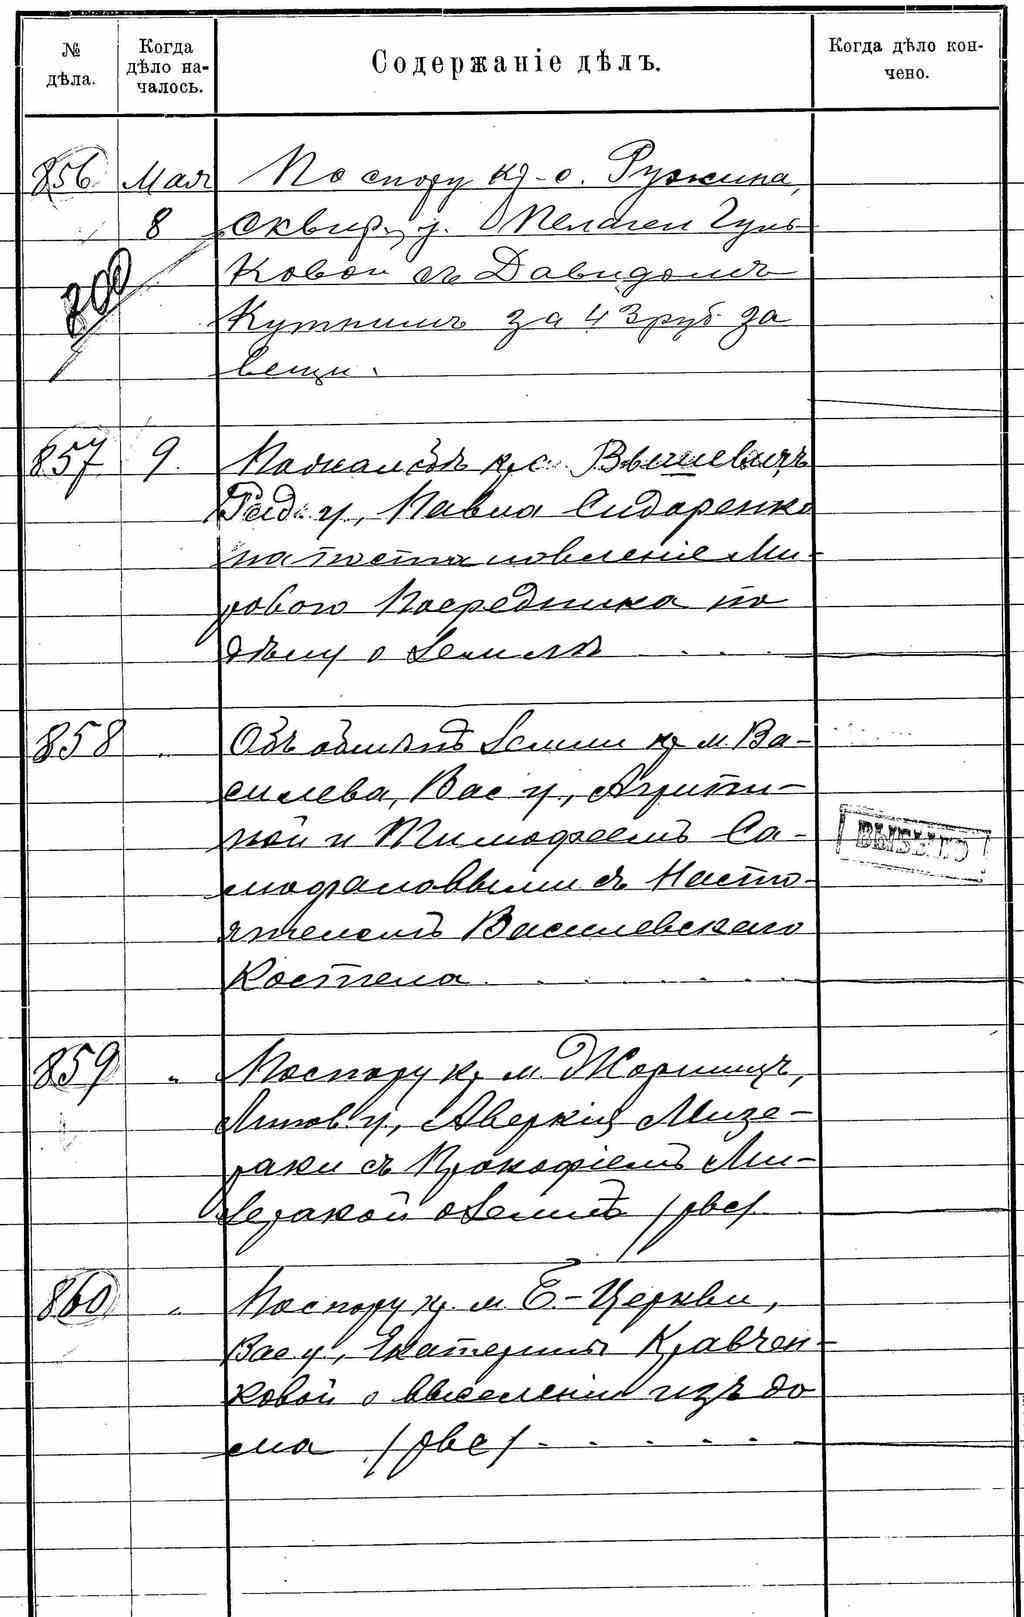 № дѣла.
Когда дѣло на-
чалось.
Содержаніе дѣлъ.
Когда дѣло кон-
чено.
856 Мая 8 По спору кр. с. Ружина,
Сквир. у. Пелагеи Гуль-
ковой съ Давидомъ
200
Кутнимъ за 43 руб за
вещи.
857 9. По жалобѣ кр. с. Вышевичъ
Рад. у., Павла Сидоренко
на постановленіе Ми-
рового Посредника по
дѣлу о землѣ
858 „ Объ обмѣнѣ земли кр. м. Ва-
силева, Вас у., Агрипи-
ной и Тимофеемъ Са-
мофаловыми съ Насто-
ятелемъ Василевскаго
Костела
ВЫБЫЛО
859 „ По спору кр. м. Жорнищъ,
Липов у., Аверкія Мизе-
раки съ Прокофіемъ Ми-
зеракой о землѣ /рвс/
860 „ По спору кр. м. Б.-Церкви,
Вас у., Екатерины Кравчен-
ковой о выселеніи изъ до
ма /рвс/